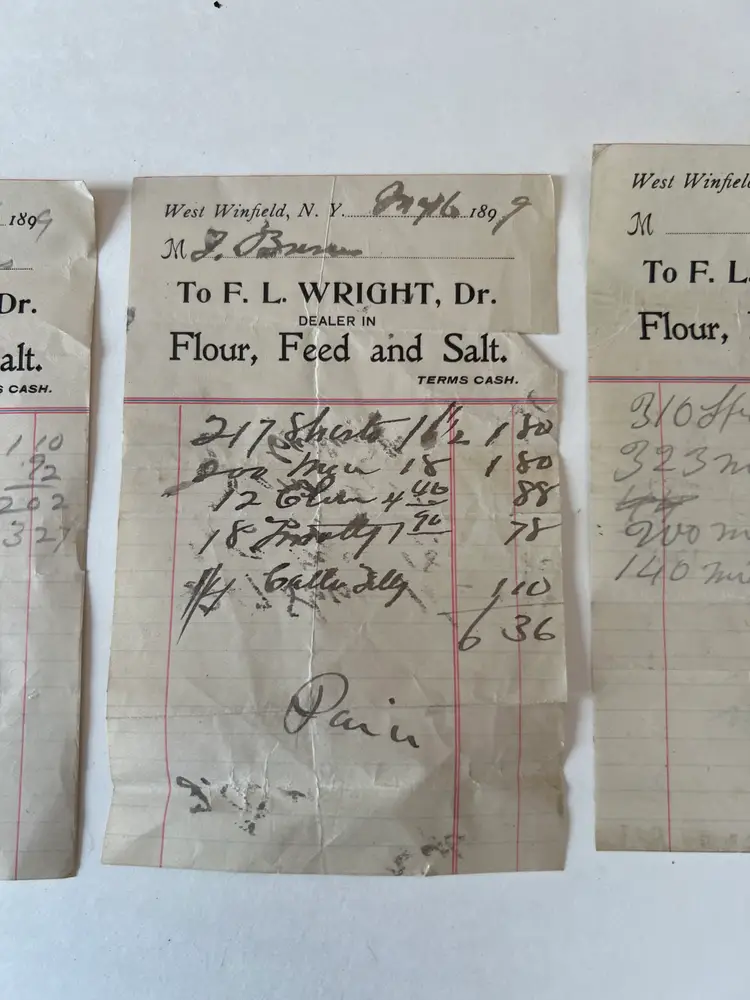 1899
Dr.
alt.
S CASH.
1 10
92
2 02
3 27
West Winfield, N. Y. May 6 1899
M J.
To F. L. WRIGHT, Dr.
DEALER IN
Flour, Feed and Salt.
TERMS CASH.
217 Shorts 16 1/2 1 80
200 18 1 80
12 4 88
18 1 90 78
1 10
6 36
Paid
West Winfield
M
To F. L.
Flour,
310
323 m
200 m
140